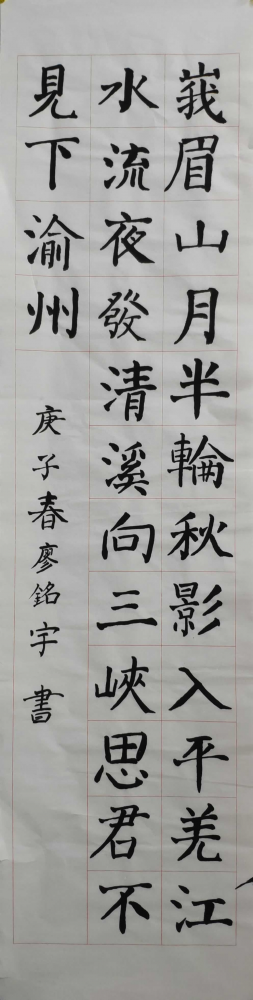 峩眉山月半輪秋影入平羌江
水流夜發清溪向三峽思君不
見下渝州
庚子春廖銘宇書